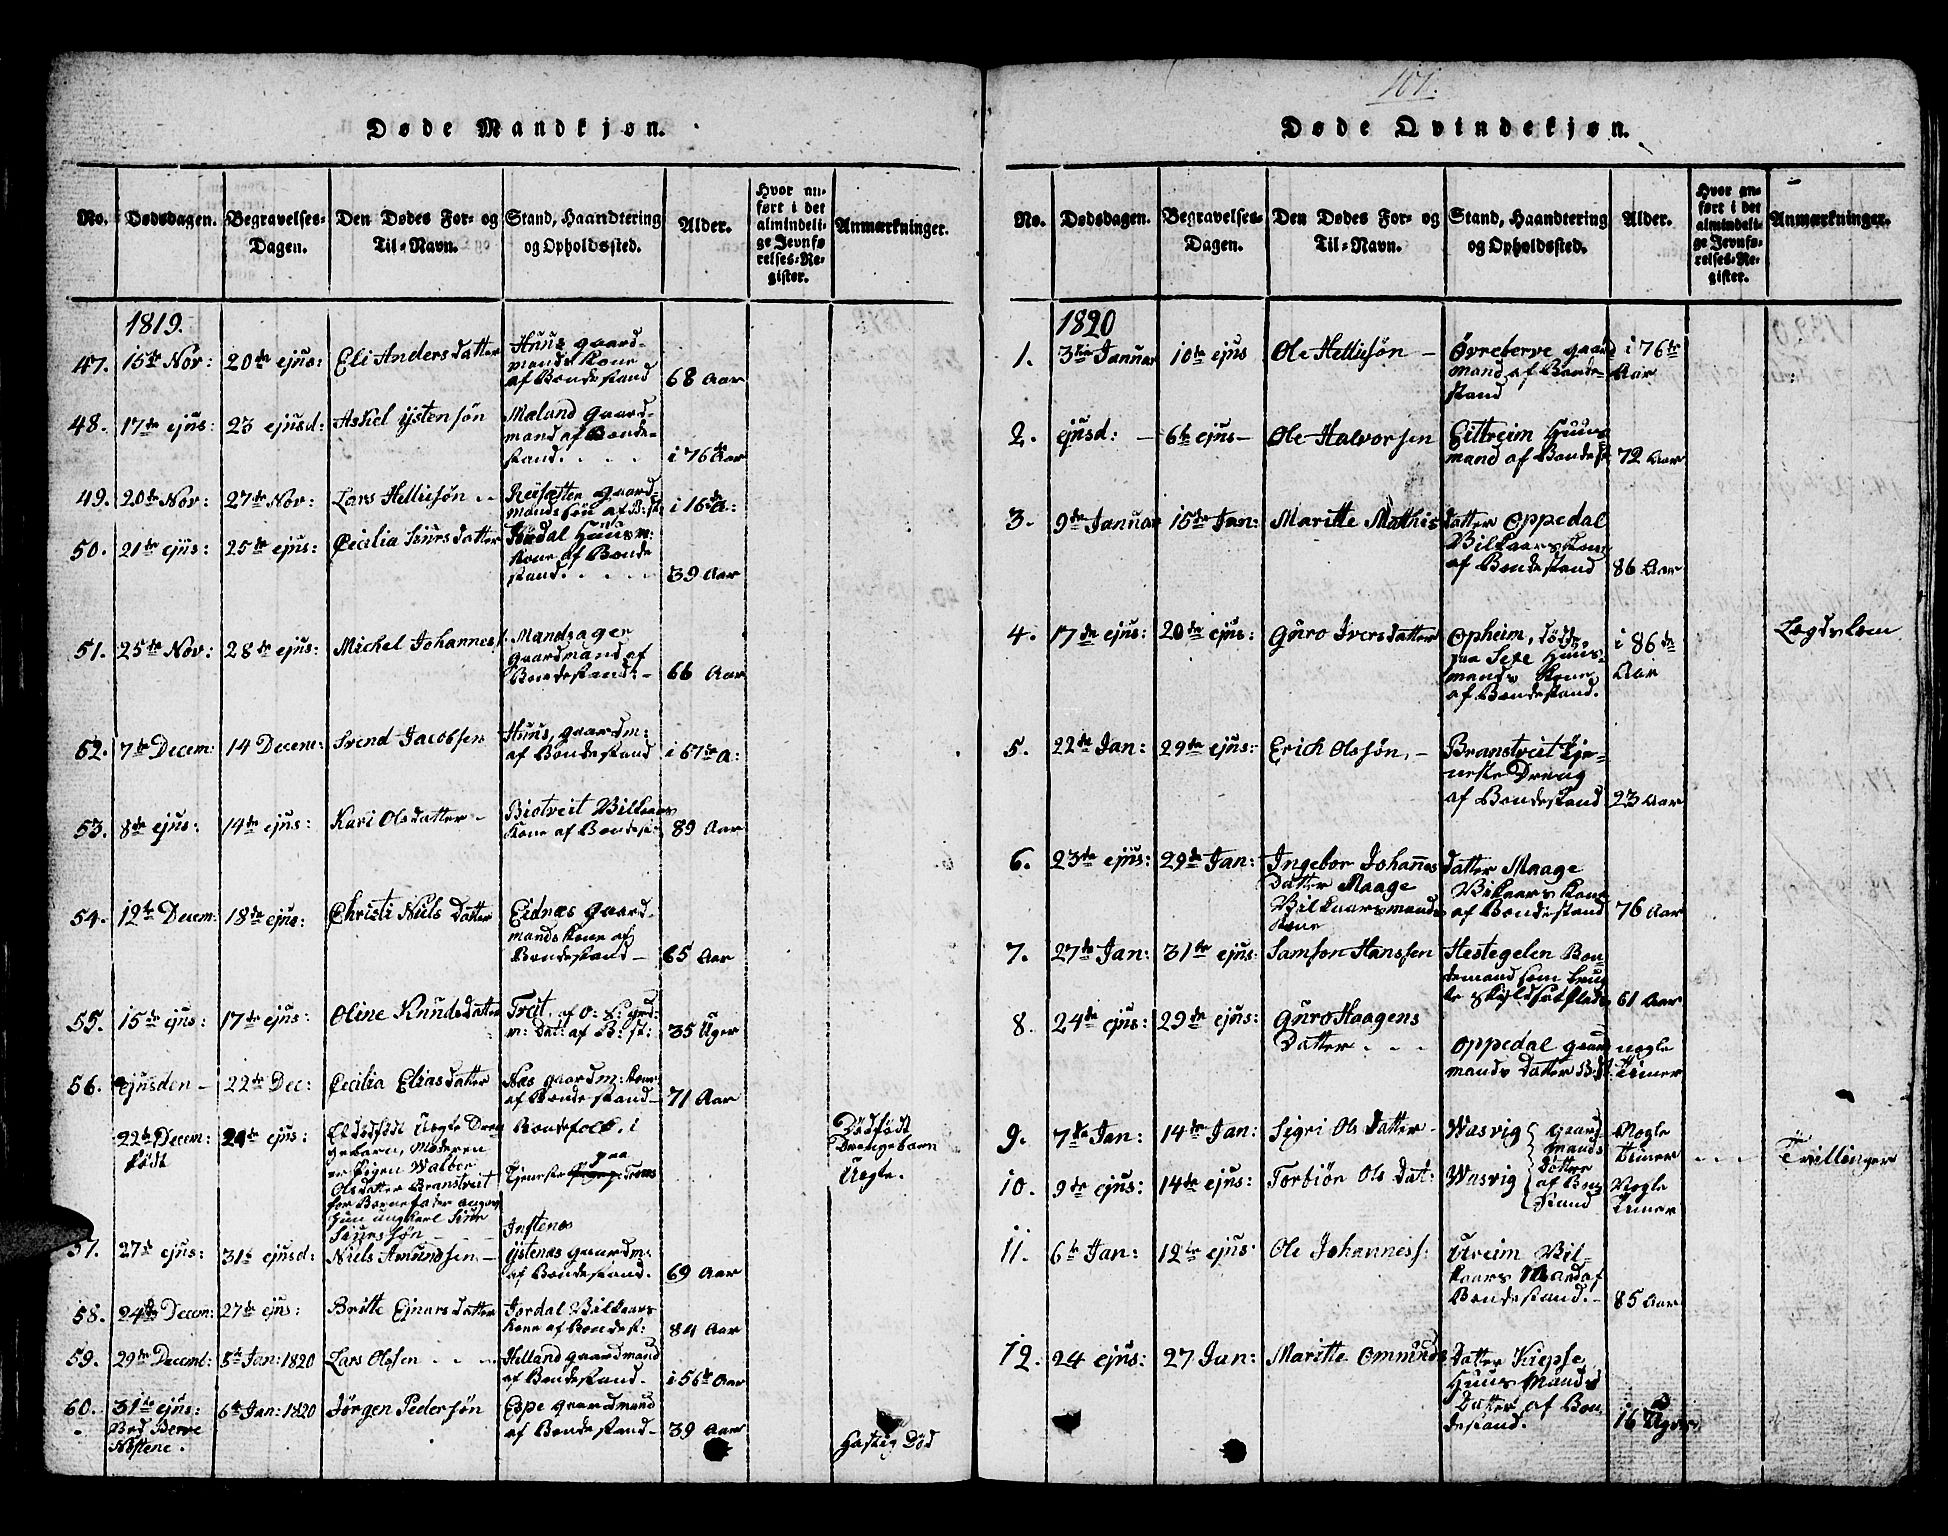 Døde Mandkjøn.
No.
Dødsdagen.
Begravelses-
Dagen.
Den Dødes For- og
Til-Navn.
Stand, Haandtering
og Opholdssted.
Alder.
Hvor an-
ført i det
almindeli-
ge Jevnfø-
relses-Re-
gister.
Anmærkninger.
1819.
47. 15de Nov: 20de ejus: Eli Andersdatter Huus gaard-
mands Kone
af Bondestand 68 Aar
48. 17de ejus: 23 ejusd: Askel ystensøn Maland gaard-
mand af Bonde-
stand. i 76de Aar
49. 20de Nov: 27de Nov: Lars Hellisøn Reisæter gaard-
mandssøn af B: st: i 16de A:
50. 21de ejus: 25de ejus: Cecilia Siursdatter Huusm:
Kone af Bonde
stand. 39 Aar
51. 25de Nov: 28de ejus: Michel Johannes Mandsager
gaardmand af
Bondestand 66 Aar
52. 7de Decem: 14 Decem: Svend Jacobsen Huus, gaardm:
af Bondestand i 67de A:
53. 8de ejus: 14de ejus: Kari Olsdatter Biotveit Vilkaars
Kone af Bondest: 89 Aar
54. 12te Decem: 18de ejus: Christi Nielsdatter Eidnæs gaard-
mands Kone af
Bondestand 65 Aar
55. 15de ejus: 17de ejus: Oline Knudsdatter Freit, af O: K: grd-
m: Dat: af B: st: 35 Uger
56. ejusden 22de Dec: Cecilia Eliasdatter Næs gaardm: Kone
af Bondestand 71 Aar
22de Decem: 24de ejus: Et dødfødt Uægte Dren
født
gebarn, Moderen
er Pigen Walbor
Olsdatter Branstveit
for Barnefader angav
hun ungkarl Siur
Siurssøn
Bondefolk, i
Tjeneste paa
Dødfødt
Drengebarn
Uægte.
57. 27de ejus: 31te ejusd: Niels Amundsen Instenæs
ystenæs gaardm:
af Bondestand. 69 Aar
58. 24de Decem: 27de ejus: Britte Ejnarsdatter Jordal Vilkaars
Kone af Bondest: 84 Aar
59. 29de Decembr: 5te Jan: 1820 Lars Olssen Helland gaardmand
af Bondestand. i 56de Aar
60. 31te ejus: 6te Jan: 1820 Jørgen Pedersøn Espe gaardmand
af Bondestand 39 Aar
Ved Berve
Nøstene.
Hastig Død
101.
Døde Qvindekjøn.
No.
Dødsdagen.
Begravelses-
Dagen.
Den Dødes For- og
Til-Navn.
Stand, Haandtering
og Opholdssted.
Alder.
Hvor an-
ført i det
almindeli-
ge Jevnfø-
relses-Re-
gister.
Anmærkninger.
1820
1. 3die Januar 10de ejus Ole Hellisøn Øvreberve gaard
mand af Bonde-
stand i 76de
Aar
2. ejusd: 6te ejus Ole Halvorsen Eittreim Huus
mand af Bondest 72 Aar
3. 9de Januar 15de Jan: Maritte Mathisdatter Oppedal
Vilkaars Kone
af Bondestand 86 Aar
4. 17de ejus: 20de ejus: Guro Iversdatter Opheim, døde
paa Sexe Huus-
mands Kone
af Bondestand. i 86de
Aar
Lægdslem
5. 22de Jan: 29de ejus: Erich Olssøn, Branstveit Tje-
neste Dreng
af Bondestand 23 Aar
6. 23de ejus: 29de Jan: Ingebor Johannes datter Maage
Datter Maage
Vilkaarsmands
Kone
Vilkaars Kone
af Bondestand 76 Aar
7. 27de Jan: 31te ejus: Samson Hanssen Hestegelen Bon-
demand som brug
te skyldsat Plads 61 Aar
8. 24de ejus: 29de ejus: Guro Haagens
Datter
Oppedal gaard
mands datter B: st: nogle
Timer
9. 7de Jan: 14de Jan: Sigri Olsdatter Wasvig Nogle
Timer
gaard
mands
døttre
af Bon
Stand
Tvillinger
10. 9de ejus: 14de ejus: Torbiør Ols dat: Wasvig Nogle
Timer
11. 6te Jan: 12te ejus: Ole Johanness: Ureim Vil-
kaars Mand af
Bondestand. 85 Aar
12. 24 ejus: 27 Jan: Maritte Omunds datter Kiepse
Huus Mands
Datter af Bon-
destand. 16 Uger